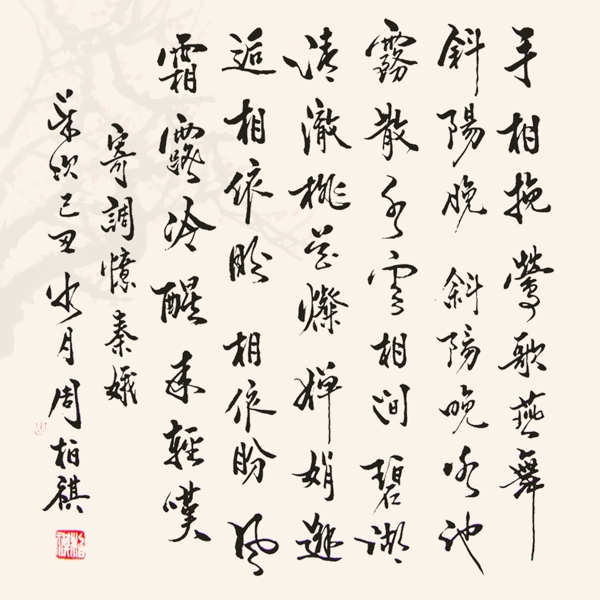 手相挽鶯歌燕舞
斜陽晚斜陽晚池
霧散水雲相間碧湖
清澈桃花燦嬋娟邂
逅相依盼相依盼風
霜露冷醒來輕嘆
寄調憶秦娥
歲次己丑月周柏祺